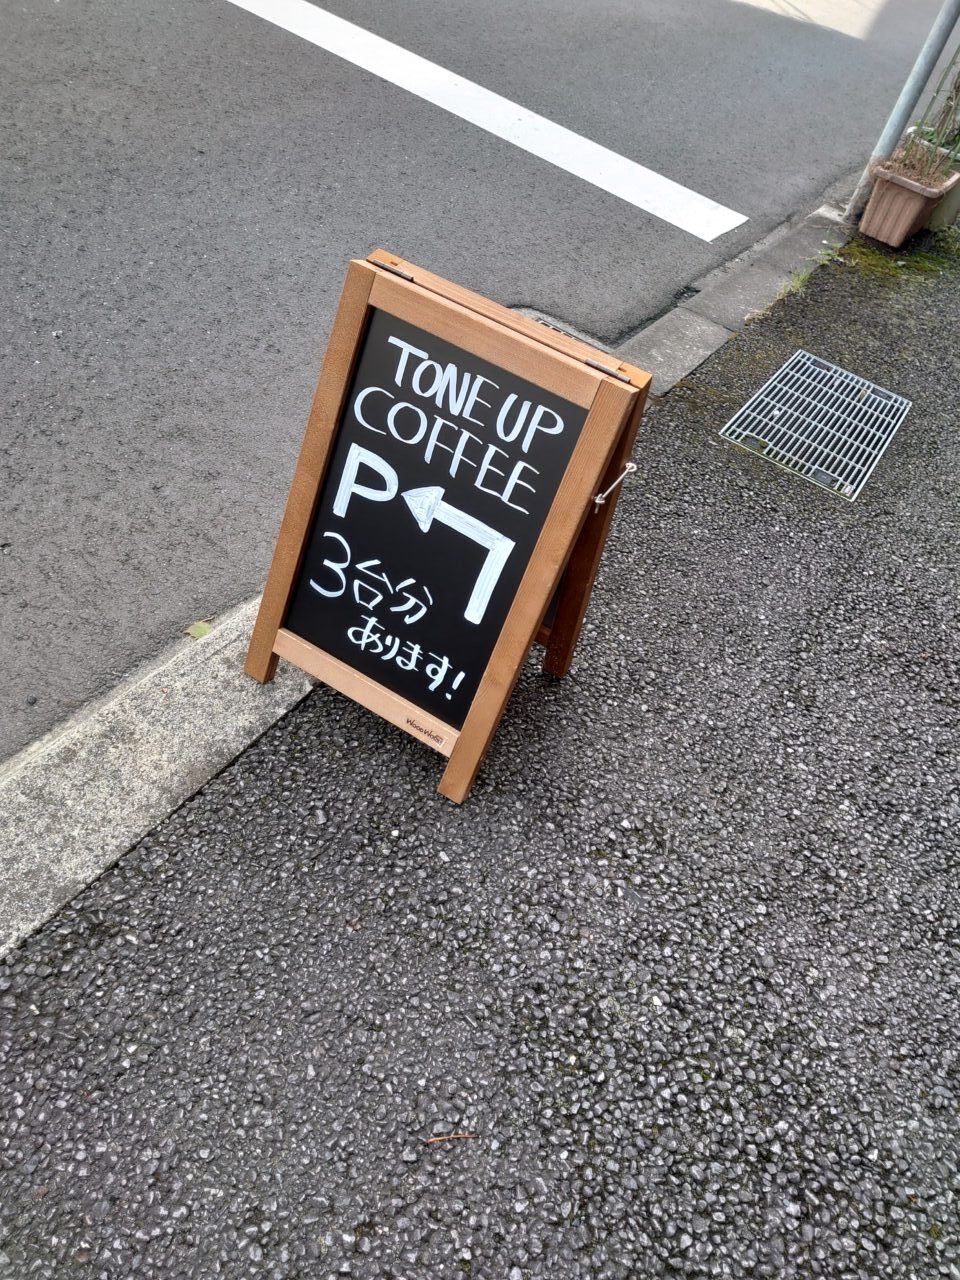 TONE UP
COFFEE
P
3台分
あります!